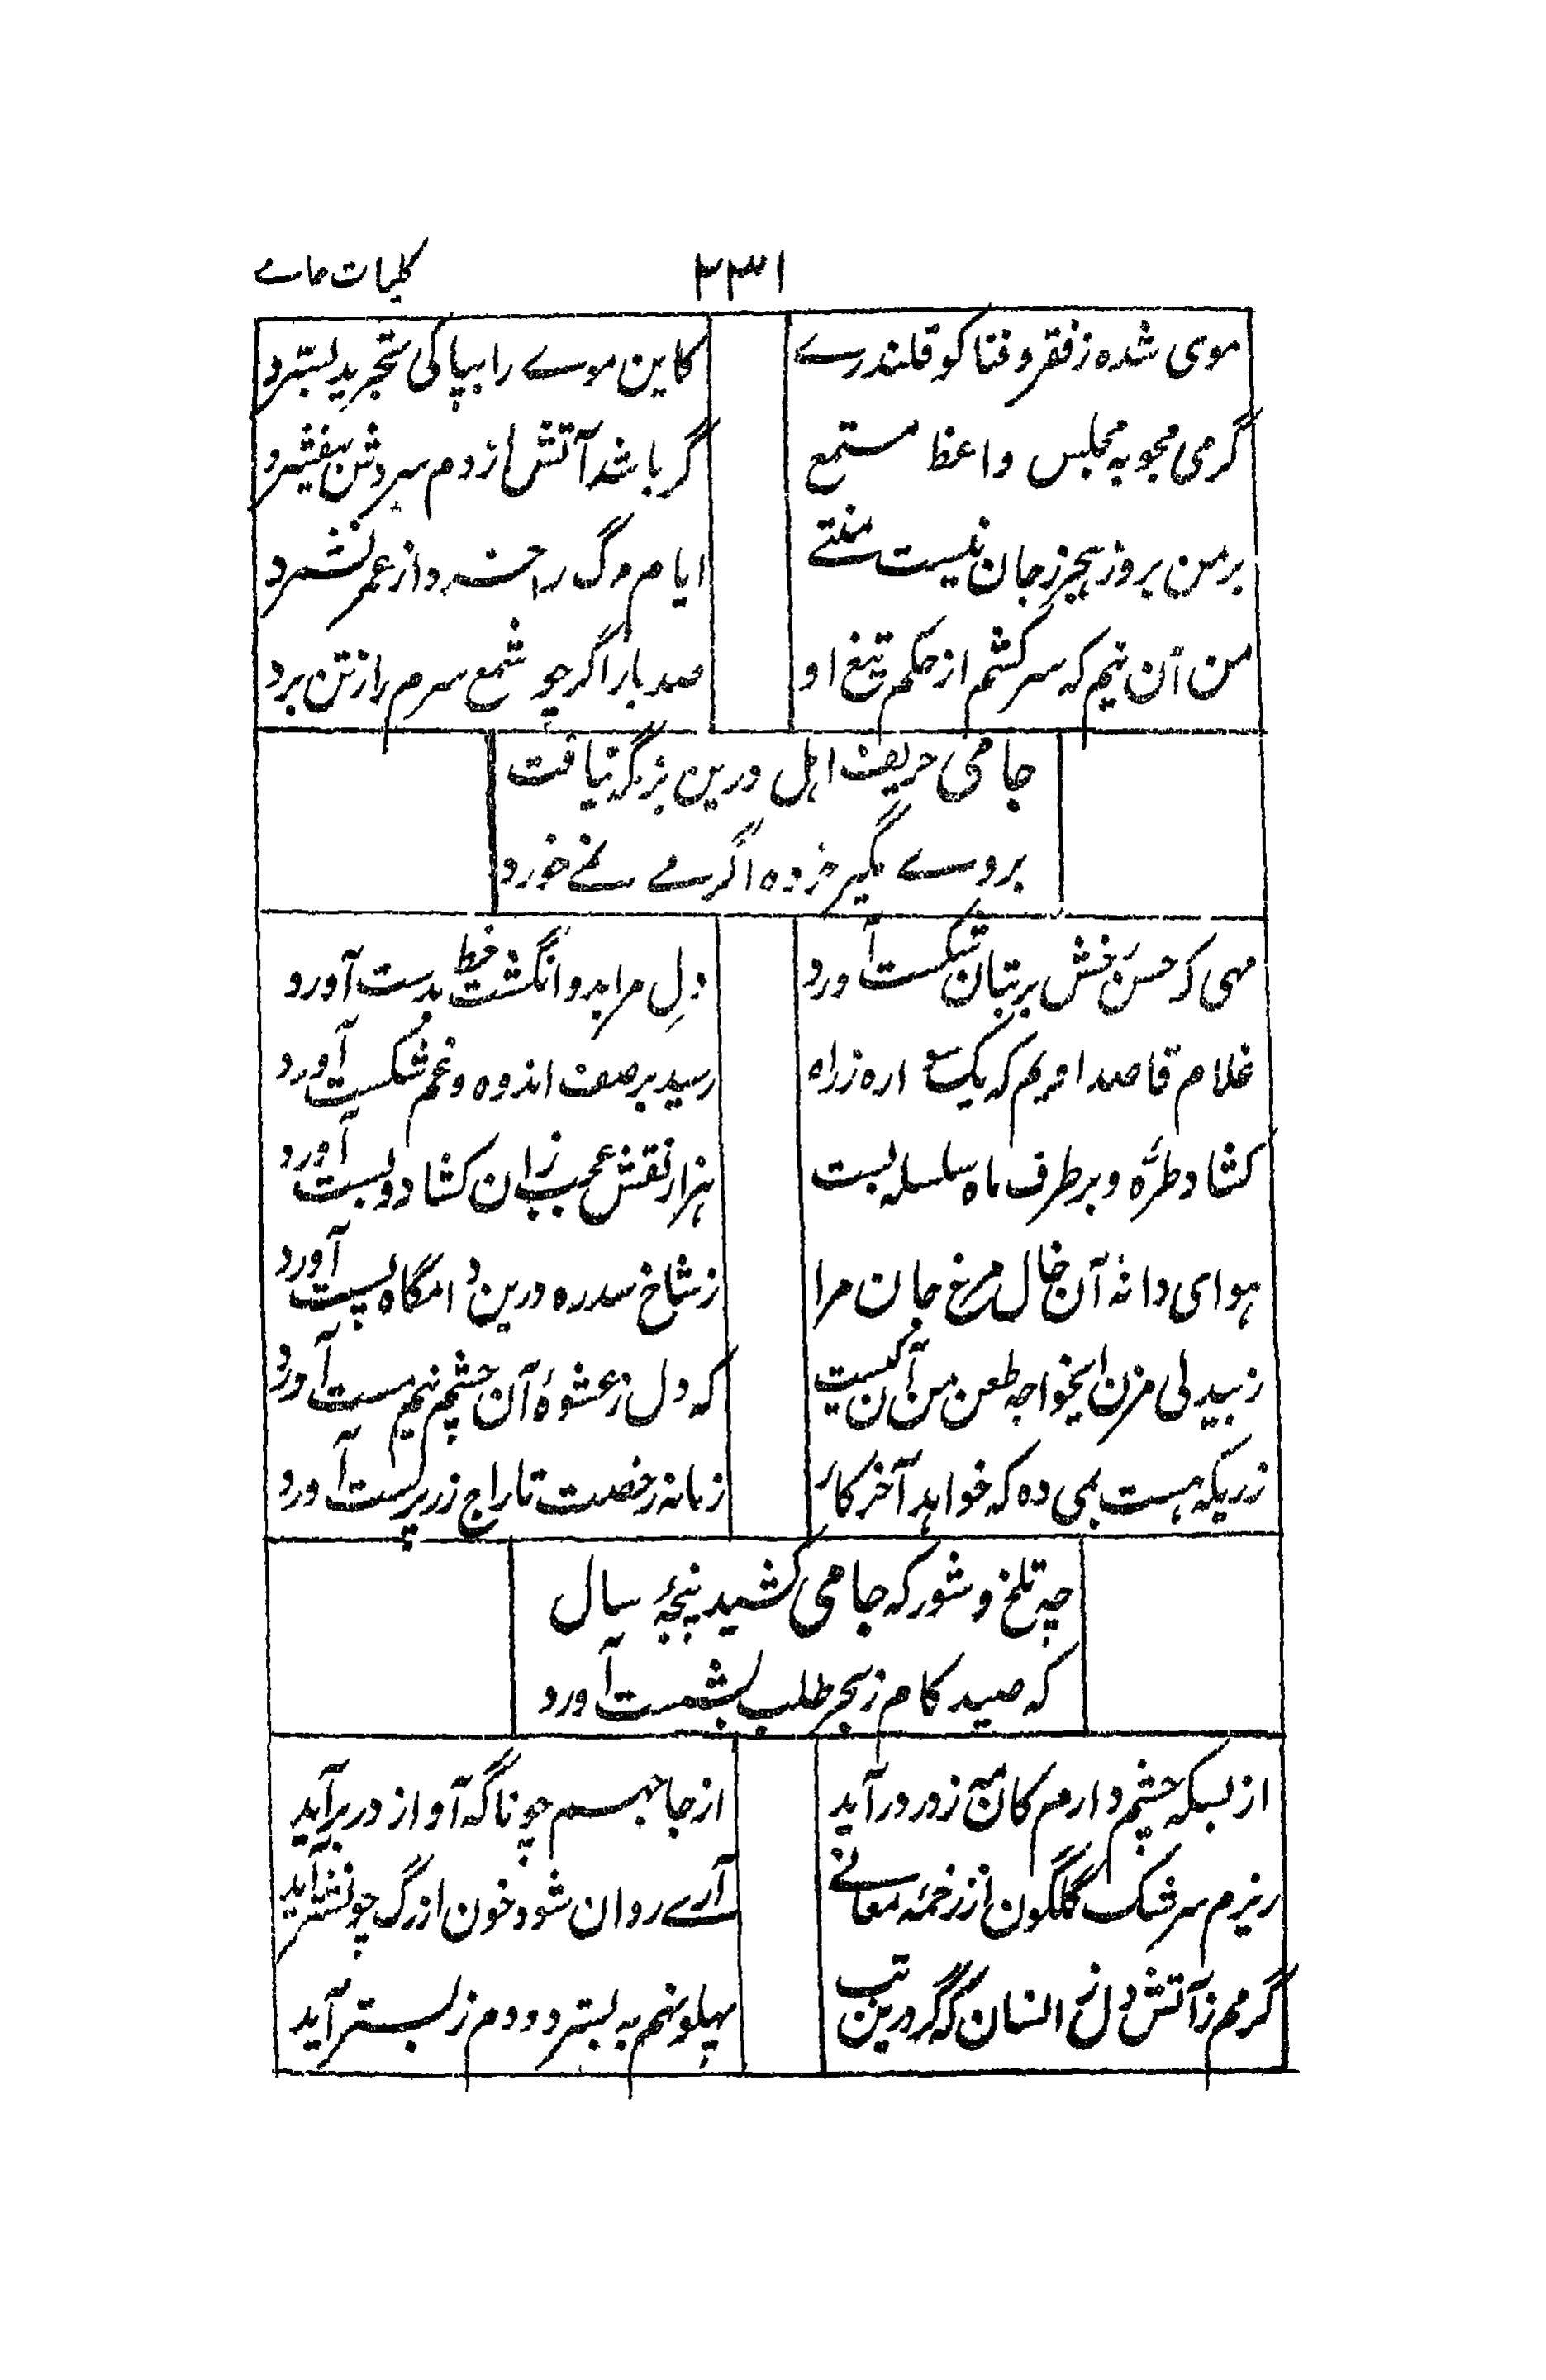 کلیات جامے
۲۳۱
موی شده ز فقر و فنا کو قلندرے
کاین موے را بپاکی تجرید بسترد
گرمی مجو به مجلس واعظ مستمع
گر باشد آتش از دم سردش بیفشرد
بر من بروز هجر ز جان نیست منتے
ایام مرگ را خرد از عمر نشمرد
من آن نیم که سر کشم از حکم تیغ او
صد بار اگر چو شمع سرم را ز تن برد
جامی حریف اهل درین بزمگه نیافت
بروے مگیر خرده اگر مے نمے خورد
مهی که حسن خطش بر بتان شکست آورد
دلِ مرا بدو انگشت خط بدست آورد
غلام قاصد اویم که یک سواره ز راه
رسید بر صف اندوه و غم شکست آورد
کشاد طرّه و بر طرف ماه سلسله بست
هزار نقش عجب زان کشاد و بست آورد
هوای دانهٔ آن خال مرغ جان مرا
ز شاخ سدره درین دامگاه پست آورد
ز بیدلی مزن ایخواجه طعن من آن کیست
که دل ز عشوهٔ آن چشم نیم مست آورد
زریکه هست بمی ده که خواهد آخر کار
زمانه رخصت تاراج زرپرست آورد
چه تلخ و شور که جامی کشید پنجهٔ سال
که صید کام ز بحر طلب بشست آورد
از بسکه چشم دارم کان مه ز در درآید
از جا جهم چو ناگه آواز در برآید
ریزم سرشک گلگون از زخمهٔ مغانے
آرے روان شود خون از رگ چو نشتر آید
گرمم ز آتش دل زانسان که گر درین تب
پهلو نهم به بستر دودم ز بستر آید